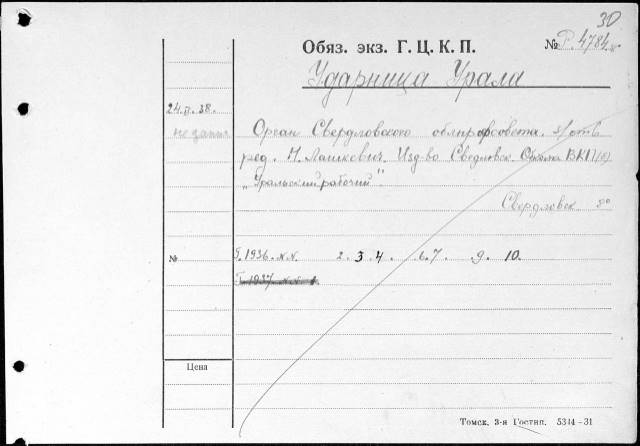 30
Обяз. экз. Г. Ц. К. П. № Р. 4784
Ударница Урала
24.II.38.
Орган Свердловского облпрофсовета. з/отв
ред. Н. Лашкевич. Изд-во Свердловск. Обкома ВКП(б)
„Уральский рабочий".
Свердловск 8°
№ Г. 1936. №№ 2. 3. 4. 6. 7. 9. 10.
Г. 1937 №№ 1
Цена
Томск. 3-я Гостип. 5344-31